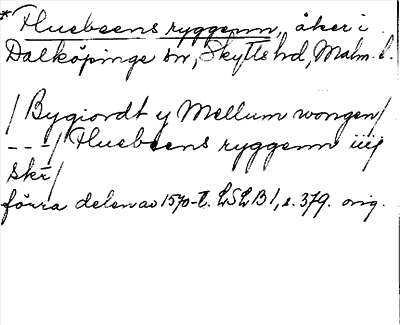 *Huebsens ryggenn, åker i
Dalköpinge sn, Skytts hd, Malm. l.
/Bygiordt y Mellum wongen/
---/ Huebsens ryggenn iiij
skr/
förra delen av 1570-t. LSLB1, s. 379. orig.